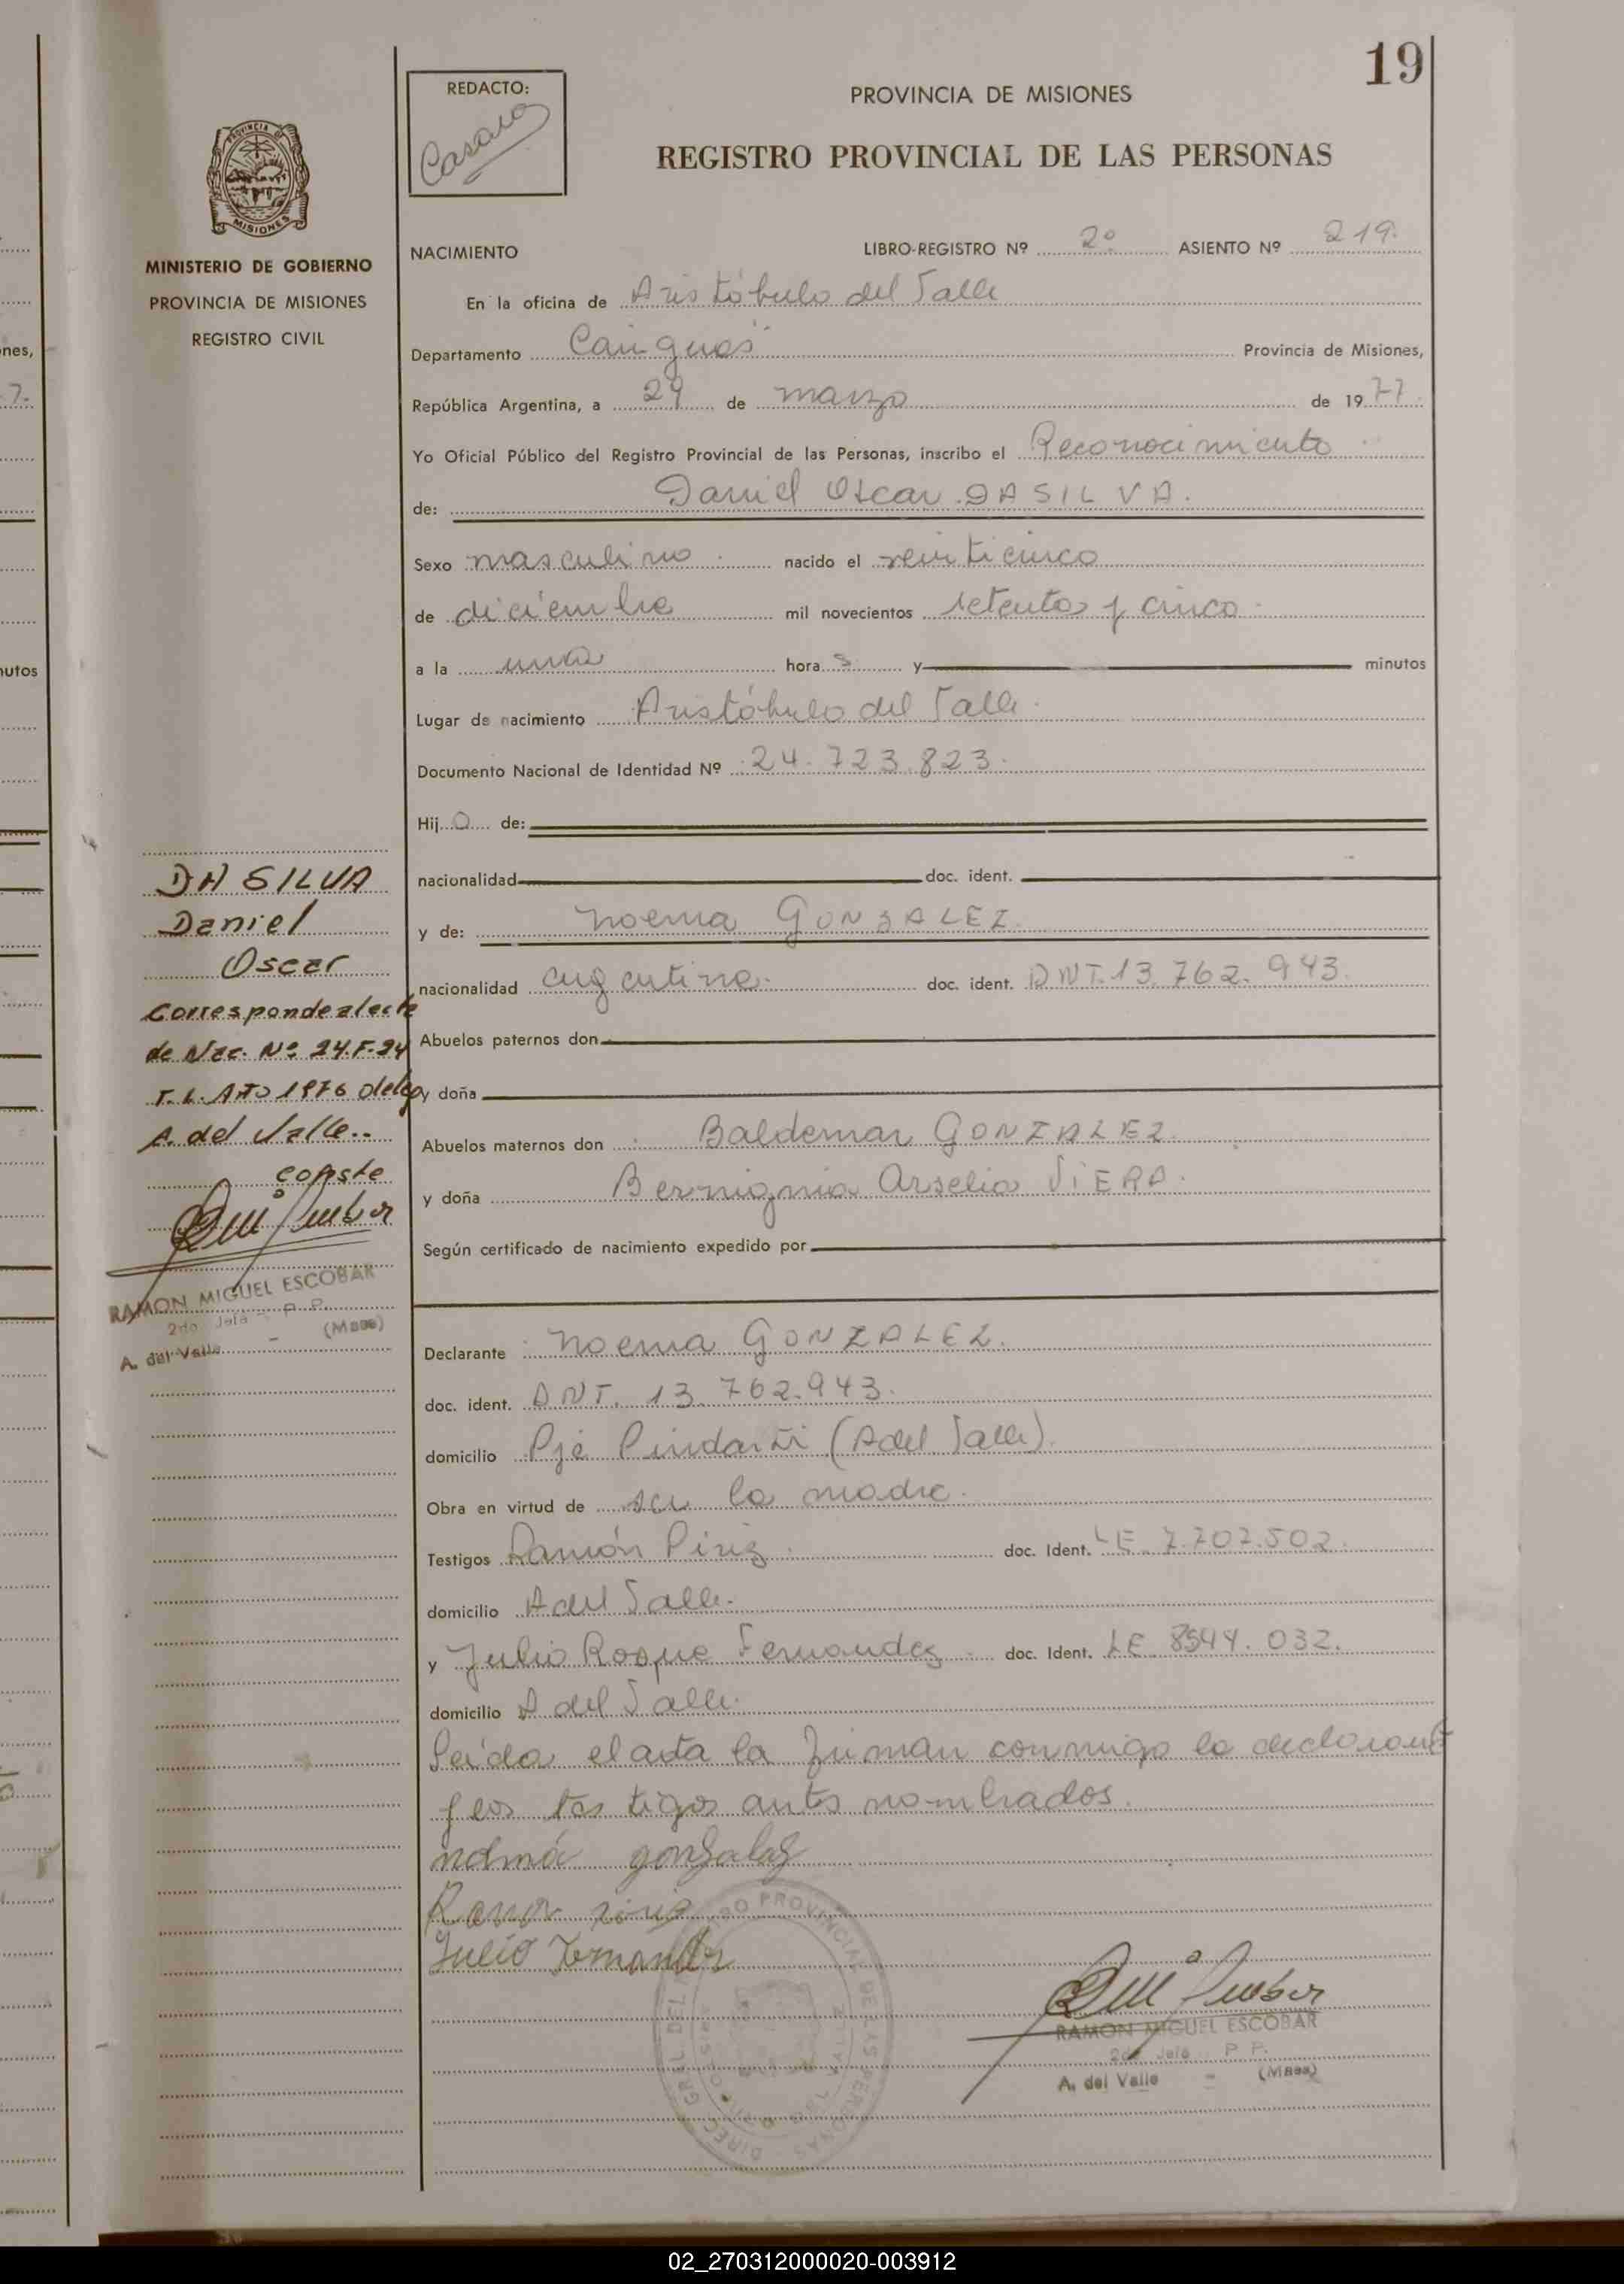 19
REDACTO:
PROVINCIA DE MISIONES
REGISTRO PROVINCIAL DE LAS PERSONAS
PROVINCIA D
MISIONES
MINISTERIO DE GOBIERNO
PROVINCIA DE MISIONES
REGISTRO CIVIL
NACIMIENTO LIBRO-REGISTRO Nº 2º ASIENTO Nº 219.
En la oficina de Aristóbulo del Valle
Departamento Cainguás Provincia de Misiones,
República Argentina, a 29 de marzo de 1977
Yo Oficial Público del Registro Provincial de las Personas, inscribo el Reconocimiento
de: Daniel Oscar DASILVA.
Sexo masculino nacido el veinticinco
de diciembre mil novecientos setenta y cinco
a la una hora s y minutos
Lugar de nacimiento Aristóbulo del Valle.
Documento Nacional de Identidad Nº 24.723.823.
Hij o de:
nacionalidad doc. ident.
y de: Noema GONZALEZ
nacionalidad argentina. doc. ident. DNI. 13.762.943.
Abuelos paternos don
y doña
Abuelos maternos don Baldemar GONZALEZ.
y doña Bernignia Arselia VIERA.
Según certificado de nacimiento expedido por
DA SILVA
Daniel
Oscar
Corresponde al acta
de Nac. Nº 24.F.24
T.L. Año 1976
A. del Valle..
conste
RAMON MIGUEL ESCOBAR
2do Jefe P. P.
A. del Valle - (Mnes)
Declarante Noema GONZALEZ.
doc. ident. DNI. 13.762.943.
domicilio Pje Pindaiti (A del Valle).
Obra en virtud de ser la madre.
Testigos Ramón Piriz doc. Ident. LE. 7.707.502.
domicilio A del Valle.
y Julio Roque Fernandez doc. Ident. LE 8544.032.
domicilio A del Valle.
Leída el acta la firman conmigo la declarante
y los testigos antes nombrados.
gonzalez
Ramon piriz
Julio Fernandez
DIREC. GRAL. DEL REGISTRO PROVINCIAL DE LAS PERSONAS
RAMON MIGUEL ESCOBAR
2do Jefe P. P.
A. del Valle - (Mnes)
nes,
7.
nutos
02_270312000020-003912